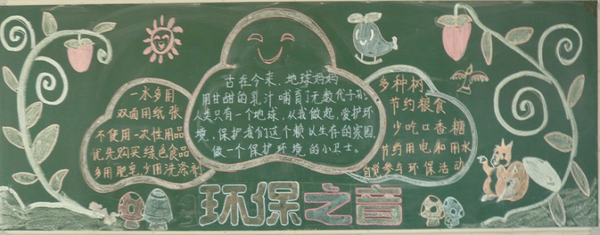 一水多用
双面用纸张
不使用一次性用品
优先购买绿色食品
多用肥皂少用洗涤剂
古在今来,地球妈妈
用甘甜的乳汁哺育了无数代子孙。
人类只有一个地球,从我做起,爱护环
境,保护我们这个赖以生存的家园,
做一个保护环境的小卫士。
多种树
节约粮食
少吃口香糖
节约用电和用水
自觉参与环保活动
环保之音